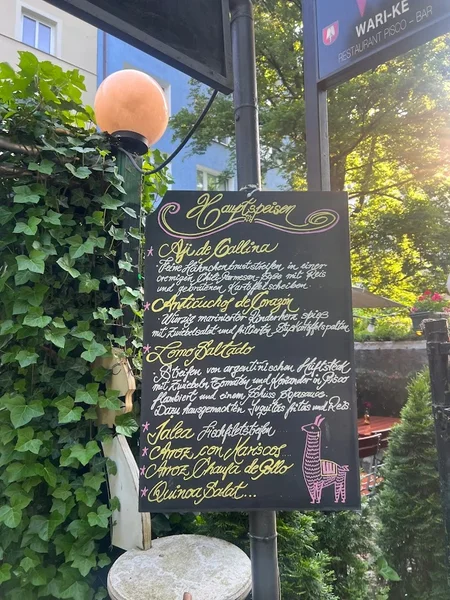 WARI-KE
RESTAURANT PISCO - BAR
Hauptspeisen
* Aji de Gallina
Feine Hähnchenbruststreifen in einer
cremigen Chili-Parmesan-Sosse mit Reis
und gebratenen Kartoffelscheiben
* Anticuchos de Corazón
Würzig marinierter Rinderherz spieß
mit Zwiebelsalat und frittierten
* Lomo Saltado
Streifen von argentinischen Hüftsteak
mit Zwiebeln, Tomaten und Koriander in Pisco
flambiert und einem Schuss Sojasauce
Dazu hausgemachten Fritas und Reis
* Jalea Fischfiletstreifen
* Arroz con Mariscos
* Arroz Chaufa de Pollo
* Quinoa Salat...